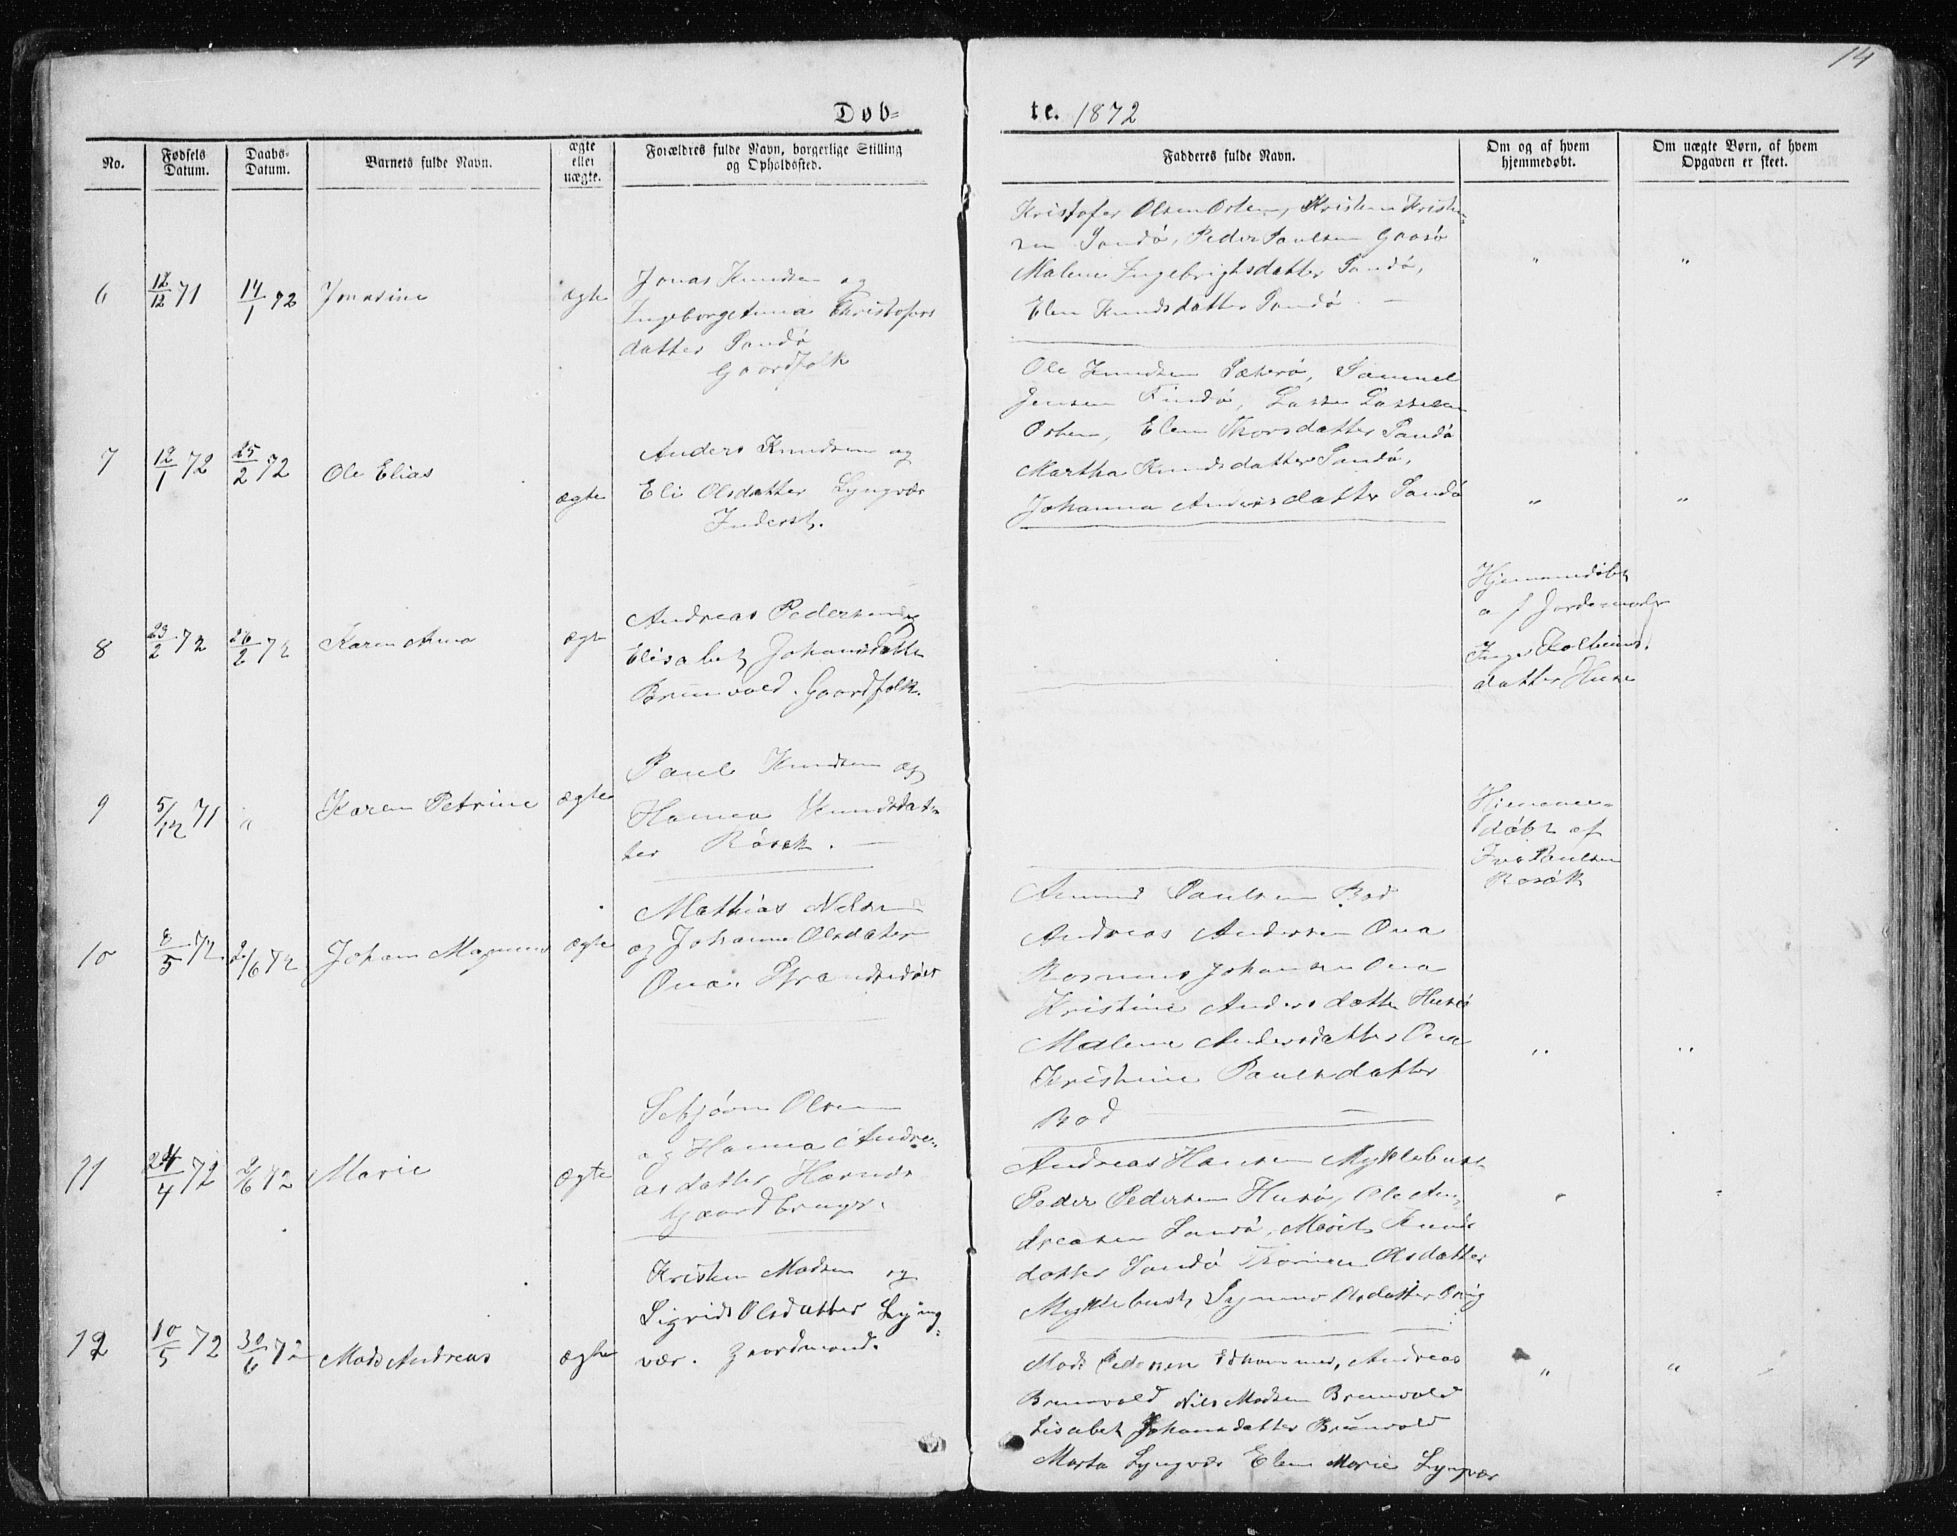 14
Døb-
te. 1872
No.
Fødsels Datum.
Daabs-Datum.
Barnets fulde Navn.
ægte eller uægte.
Forældres fulde Navn, borgerlige Stilling
og Opholdssted.
Fadderes fulde Navn.
Om og af hvem
hjemmedøbt.
Om uægte Børn, af hvem
Opgaven er skeet.
6
12/12 71
14/1 72
Jonasine
ægte
Jonas Knudsen og
Ingeborg Anna Christofers
datter Sandø
Gaardfolk
Kristofer Olsen Orten, Kristen Kristen-
sen Sandø, Peder Paulsen Gaasø
Malene Ingebrigtsdatter Sandø,
Elen Knudsdatter Sandø
"
"
7
12/1 72
25/2 72
Ole Elias
ægte
Anders Knudsen og
Eli Olsdatter Lyngvær
Inderst.
Ole Knudsen Sæterø, Samuel
Jensen Findø, Lasse Lassesen
Orten, Elen Thorsdatter Sandø
Martha Knudsdatter Sandø,
Johanna Andersdatter Sandø
"
"
8
23/2 72
26/2 72
Karen Anna
ægte
Andreas Pedersen og
Elisabet Johansdatter
Brunvold. Gaardfolk.
Hjemmedøbt
af Jordemoder
Kolbeins-
datter Huse
9
5/12 71
"
Karen Petrine
ægte
Paul Knudsen og
Hanna Knudsdat-
ter Røsok.
Hjemme-
døbt af
Iver Paulsen
Rosok
10
8/5 72
2/6 72
Johan Magnus
ægte
Mathias Nelsen
og Johanne Olsdater
Ona. Strandsidder
Amund Paulsen Bod
Andreas Andersen Ona
Rasmus Johansen Ona
Kristine Andersdatter Husø
Malene Andersdatter Ona
Kristine Paulsdatter
Bod
"
"
11
24/4 72
2/6 72
Marie
ægte
Sebjørn Olsen
og Hanna Andre-
asdatter Harnes
Gaardbruger.
Andreas Hansen Myklebust
Peder Pedersen Husøy, Ole An-
dreasen Sandø, Marit Knuds
datter Sandø Olsdatter
Myklebust, Synnev Olsdatter
"
"
12
10/5 72
30/6 72
Mads Andreas
ægte
Kristen Madsen og
Sigrid Olsdatter Lyng-
vær. Gaardmand.
Mads Pedersen Andreas
Brunvold Nils Madsen Brunvold
Lisabet Johansdatter Brunvold
Marta Lyngvær Elen Marie Lyngvær
"
"